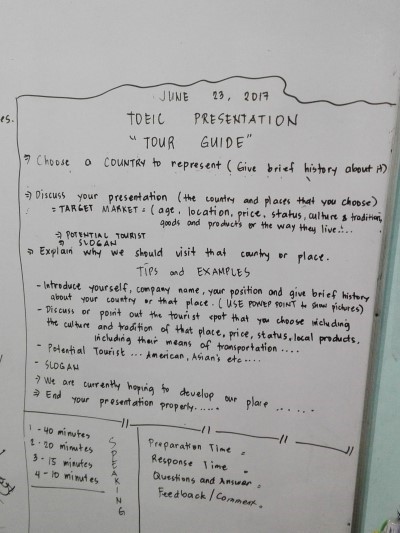 JUNE 23, 2017
es.
TOEIC PRESENTATION
"TOUR GUIDE"
⇒ Choose a COUNTRY to represent ( Give brief history about it)
⇒ Discuss your presentation (the country and places that you choose)
= TARGET MARKET = ( age, location, price, status, culture & tradition,
goods and products or the way they live.....
⇒ POTENTIAL TOURIST
⇒ SLOGAN
⇒ Explain why we should visit that country or place.
TIPS and EXAMPLES
- Introduce yourself, company name, your position and give brief history
about your country or that place. ( USE POWER POINT to show pictures)
- Discuss or point out the tourist spot that you choose including
the culture and tradition of that place, price, status, local products,
including their means of transportation ....
- Potential Tourist ... American, Asian's etc ....
- SLOGAN
⇒ We are currently hoping to develop our place ......
⇒ End your presentation properly......
1 - 40 minutes
2 - 20 minutes
3 - 15 minutes
4 - 10 minutes
SPEAKING
Preparation Time
Response Time
Questions and Answer
Feedback / Comment.